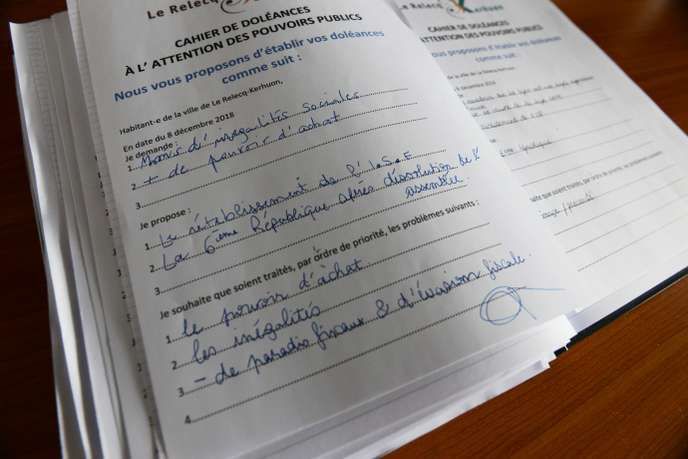 Le Relecq Kerhuon
CAHIER DE DOLÉANCES
À L' ATTENTION DES POUVOIRS PUBLICS
Nous vous proposons d'établir vos doléances
comme suit :
Habitant-e de la ville de Le Relecq-Kerhuon,
En date du 8 décembre 2018
Je demande :
1 Moins d'inégalités Sociales
2 + de pouvoir d'achat
3
Je propose :
1 Le rétablissement de l'I.S.F
2 La 6ème République après dissolution de l'
assemblée.
3
Je souhaite que soient traités, par ordre de priorité, les problèmes suivants :
1 le pouvoir d'achat
2 les inégalités
3 - de paradis fiscaux & d'évasion fiscale.
4
Le Relecq Kerhuon
CAHIER DE DOLÉANCES
ATTENTION DES POUVOIRS PUBLICS
proposons d'établir vos doléances
comme suit :
de la ville de Le Relecq-Kerhuon,
décembre 2018